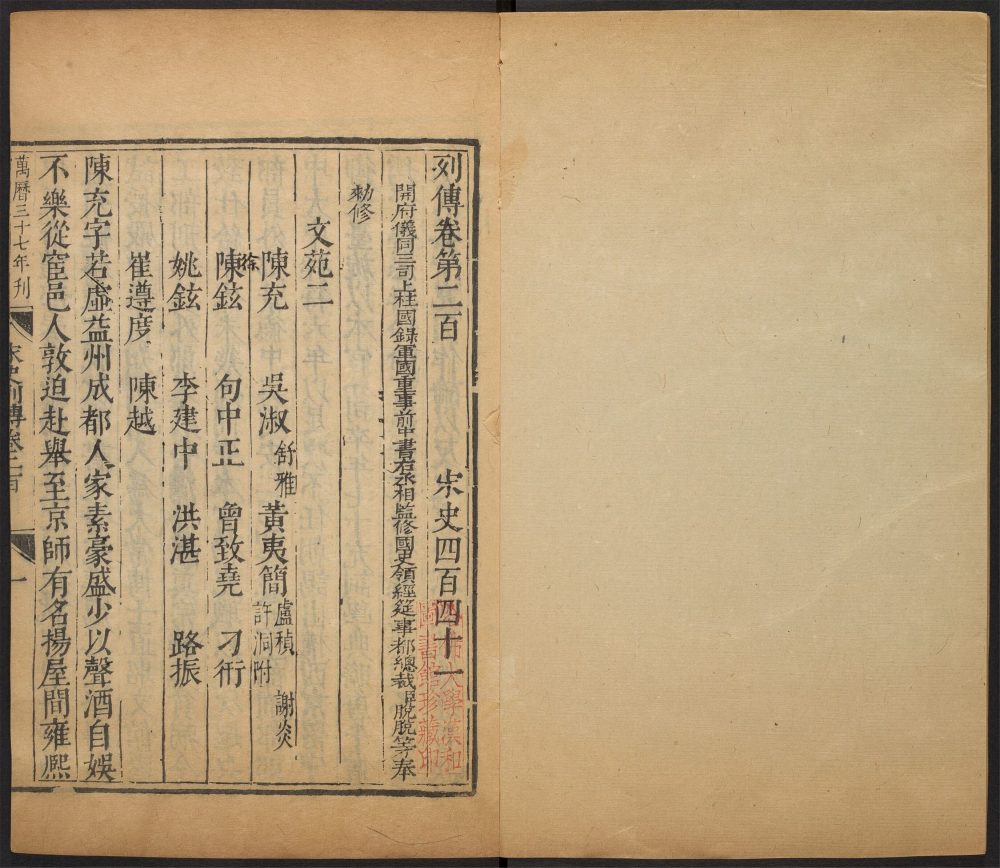 列傳卷第二百　宋史四百四十一
開府儀同三司上柱國錄軍國重事前中書右丞相監修國史領經筵事都總裁臣脫脫等奉
勑修
文苑二
陳充　吳淑　舒雅　黃夷簡　盧稹　謝炎　許洞附
徐
陳鉉　句中正　曾致堯　刁衎
姚鉉　李建中　洪湛　路振
崔遵度　陳越
陳充字若虛益州成都人家素豪盛少以聲酒自娛
不樂從宦邑人敦迫赴舉至京師有名揚屋間雍熙
萬曆三十七年刊
宋史列傳卷二百
一
大學漢和
圖書館珍藏印